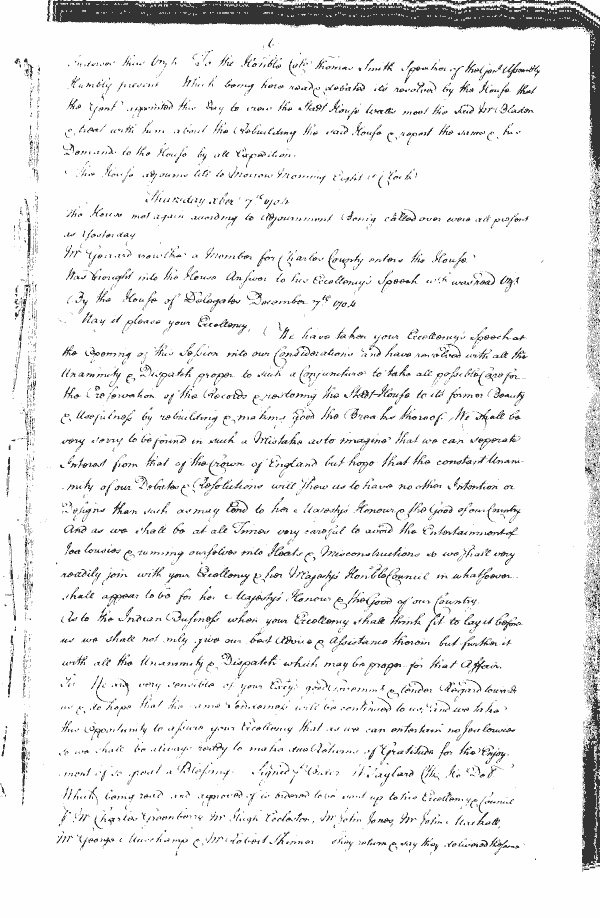 Indorsed thus Vizt. To the Honble Coll: Thomas Smith Speaker of the Genl Assembly
Humbly present Which being here read & debated its resolved by the House that
the Gentl appointed this day to view the Statt House Walls meet the said Mr Bladen
& treat with him about the Rebuilding the said House & report the same & his
Demands to the House by all Expedition.
The House adjourns till to Morrow Morning Eight o'Clock
Thursday xber 7th 1704
The House met again according to Adjournment being called over were all present
as Yesterday
Mr Gerrard a Member for Charles County enters the House
Was brought into the House Answer to his Excellency's Speech wch was read Vizt
By the House of Delegates December 7th 1704
May it please your Excellency,
We have taken your Excellency's Speech at
the Opening of this Session into our Considerations and have resolved with all the
Unanimity & Dispatch proper to such a Conjuncture to take all possible Care for
the Preservation of the Records & restoring the Statt House to its former Beauty
& Usefulness by rebuilding & making good the Breaches thereof. We shall be
very sorry to be found in such a Mistake as to imagine that we can seperate
Interest from that of the Crown of England but hope that the constant Unani-
mity of our Debates & Resolutions will shew us to have no other Intention or
Designs than such as may tend to her Majesty's Honour & the Good of our Country
And as we shall be at all Times very careful to avoid the Entertainment of
Jealousies & running ourselves into Heats & Misconstructions so we shall very
readily join with your Excellency & her Majesty's Honble Council in whatsoever
shall appear to be for her Majesty's Honour & the Good of our Country.
As to the Indian Business when your Excellency shall think fit to lay it before
us we shall not only give our best Advice & Assistance therein but further it
with all the Unanimity & Dispatch which may be proper for that Affair.
We are very sensible of your Excys good & tender Regard towards
us & do hope that the same Tenderness will be continued to us and we take
this Opportunity to assure your Excellency that as we can entertain no Jealousies
so we shall be always ready to make due Returns of Gratitude for the Enjoy-
ment of so great a Blessing. Signed p Order W Taylard Clk Ho Del
Which being read and approved of is ordered to be sent up to his Excellency & Council
p Mr Charles Greenberry Mr Hugh Eccleston, Mr John Jones, Mr John Mackall,
Mr George Muschamp & Mr Robert Skinner they return & say they delivered the same